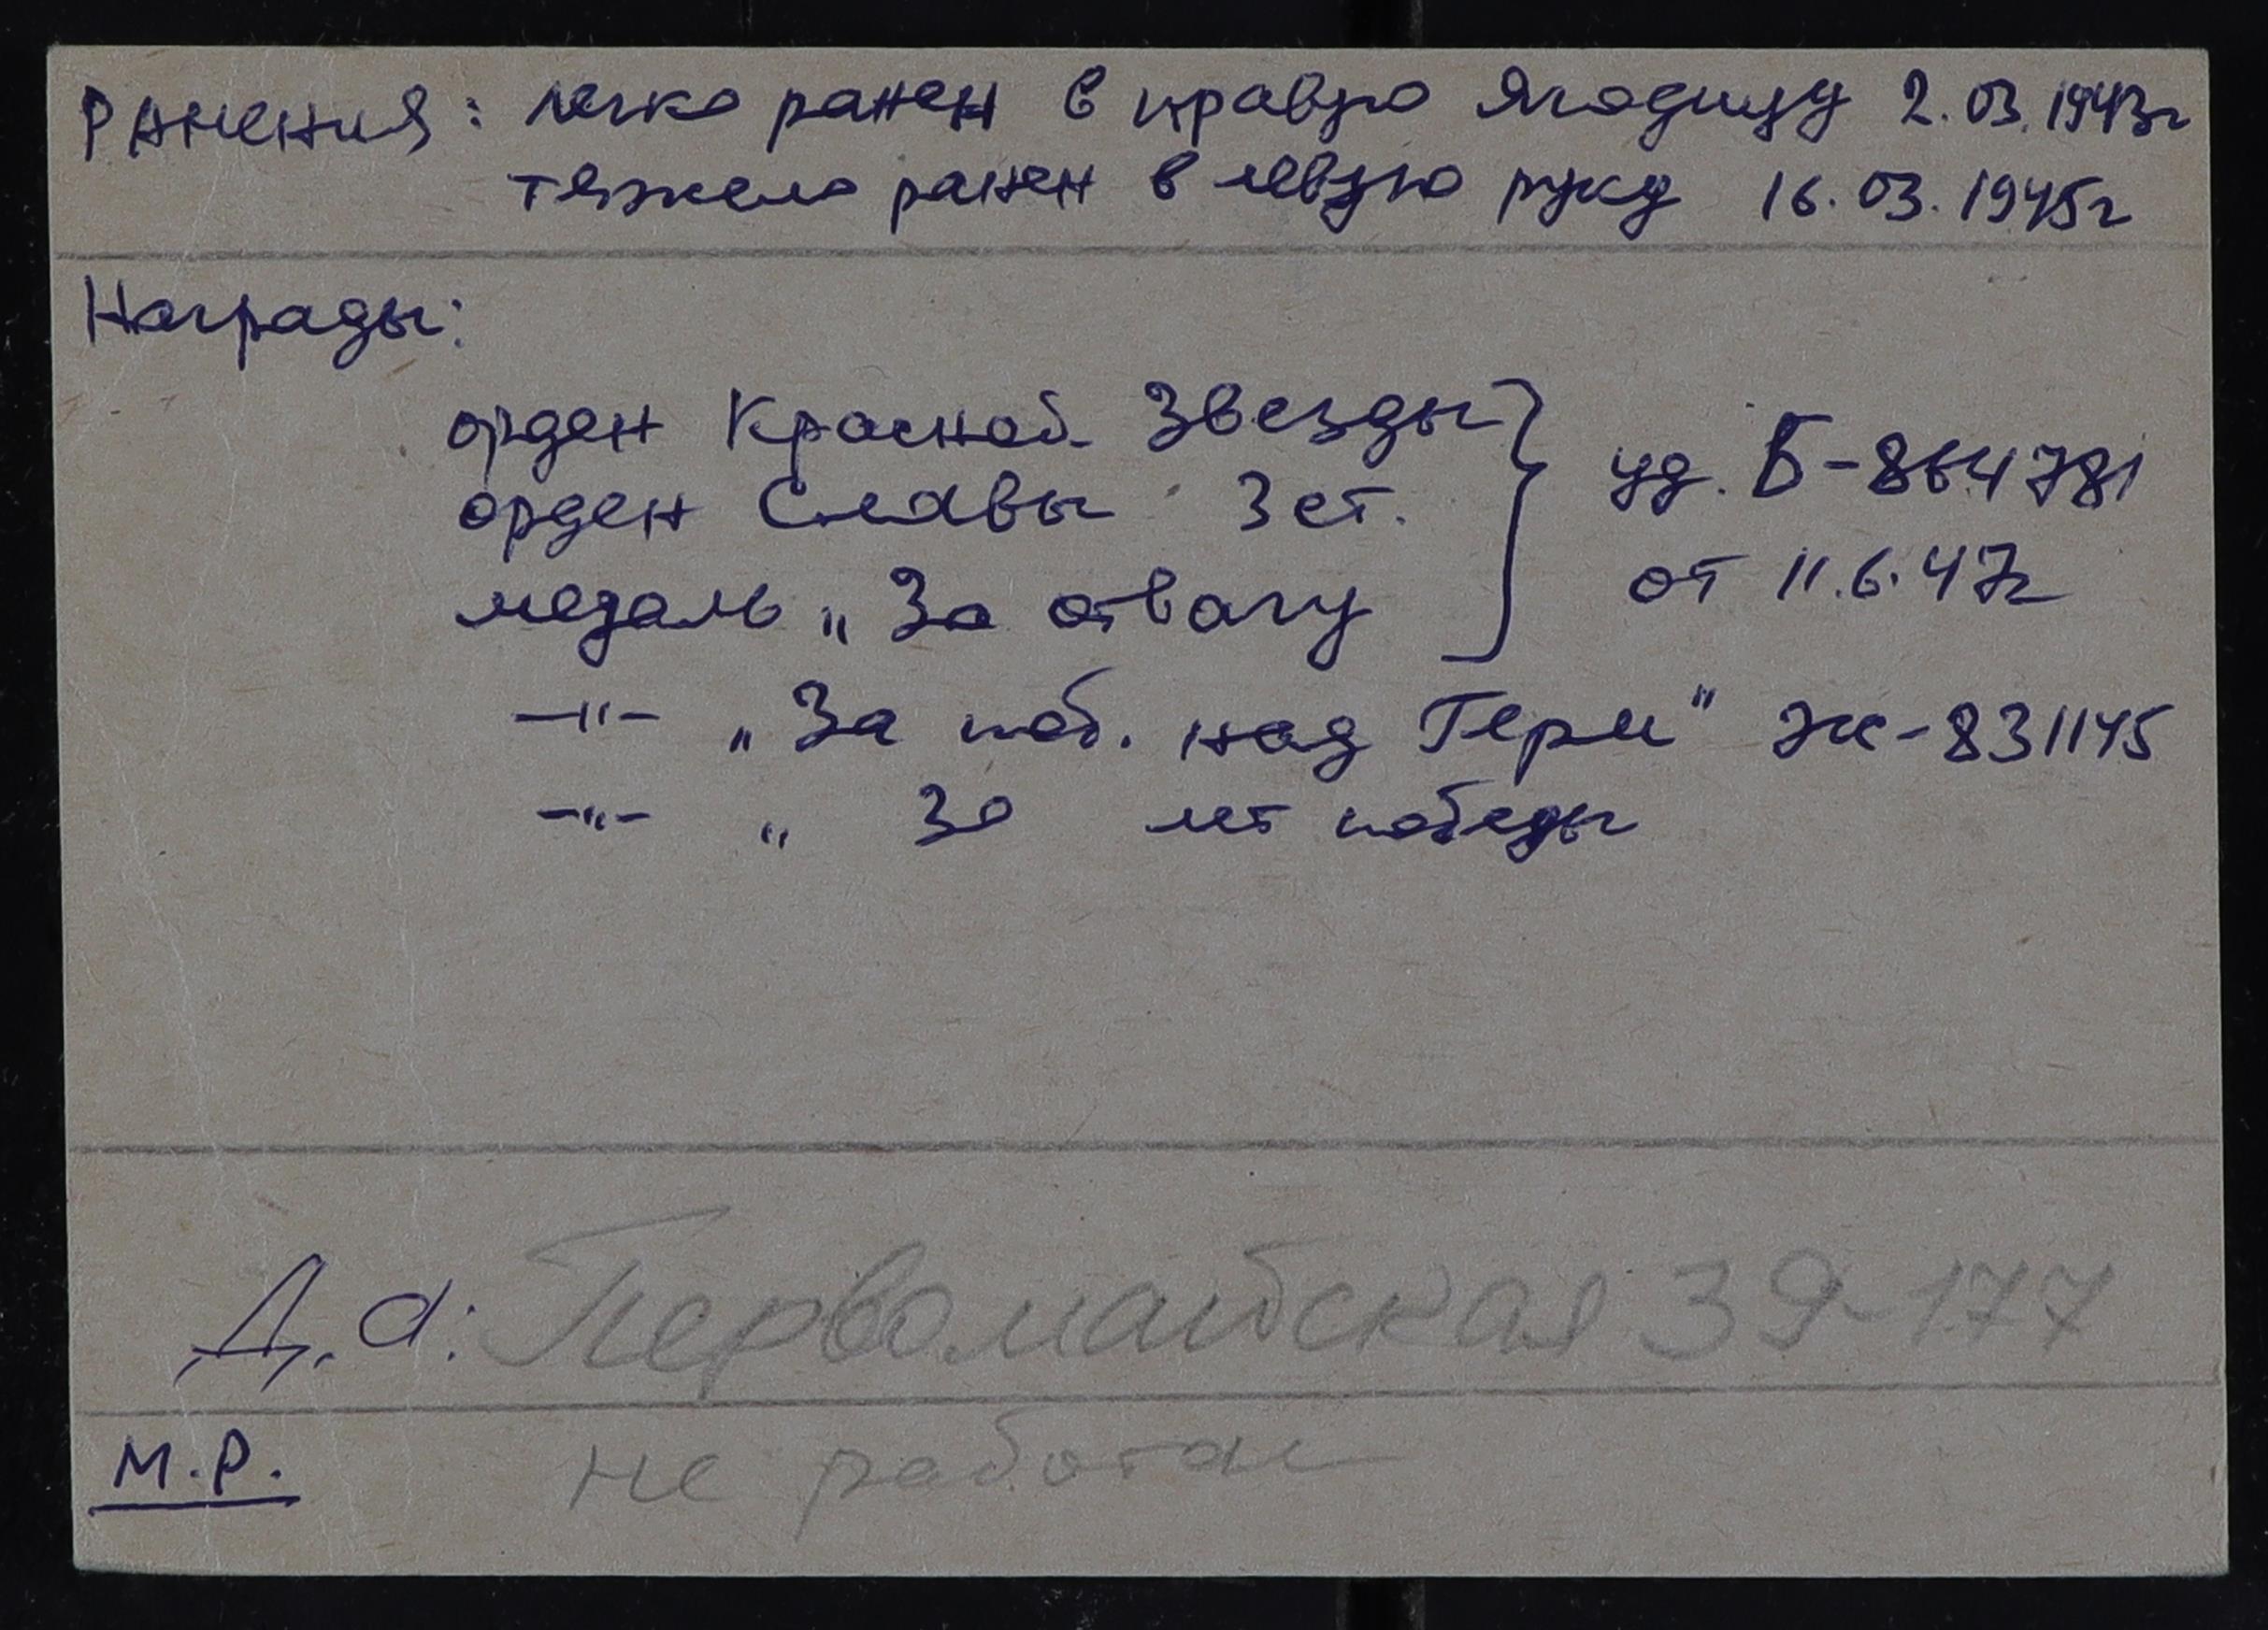 Ранения: легко ранен в правую ягодицу 2.03.1943г
тяжело ранен в левую руку 16.03.1945г
Награды:
орден Красной Звезды } уд. Б-864781
орден Славы 3 ст.
медаль „За отвагу от 11.6.47г
—"— „За поб. над Герм" Ж-831145
—"— „ 30 лет победы
Д.а: Первомайская 39-177
М.Р. не работает